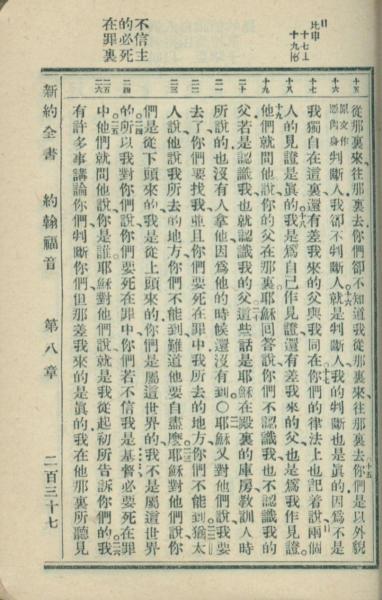 申十七
十九
十五
從那裏來、往那裏去、你們卻不知道我從那裏來、往那裏去、你們是以外貌
原文作
憑肉身
判斷人、我卻不判斷人、就是判斷人、我的判斷也是真的、因爲不是
我獨自在這裏、還有差我來的父與我同在、你們的律法上也記着說、兩個
人的見證是眞的、我是爲自己作見證、還有差我來的父、也是爲我作見證、
他們就問他說、你的父在那裏、耶穌回答說、你們不認識我、也不認識我的
父、若是認識我、也就認識我的父、這些話是耶穌在殿裏的庫房教訓人時
所說的、也沒有人拿他、因爲他的時候還沒有到、〇耶穌又對他們說、我要
去了、你們要找我、並且你們要死在罪中、我所去的地方、你們不能到、猶太
人說、他說我所去的地方、你們不能到、難道他要自盡麼、耶穌對他們說、你
們是從下頭來的、我是從上頭來的、你們是屬這世界的、我不是屬這世界
的、所以我對你們說、你們要死在罪中、你們若不信我是基督、必要死在罪
中、他們就問他說、你是誰、耶穌對他們說、就是我從起初所告訴你們的、我
有許多事講論你們、判斷你們、但那差我來的是眞的、我在他那裏所聽見
不信主
的必死
在罪裏
新約全書　約翰福音　第八章　二百三十七